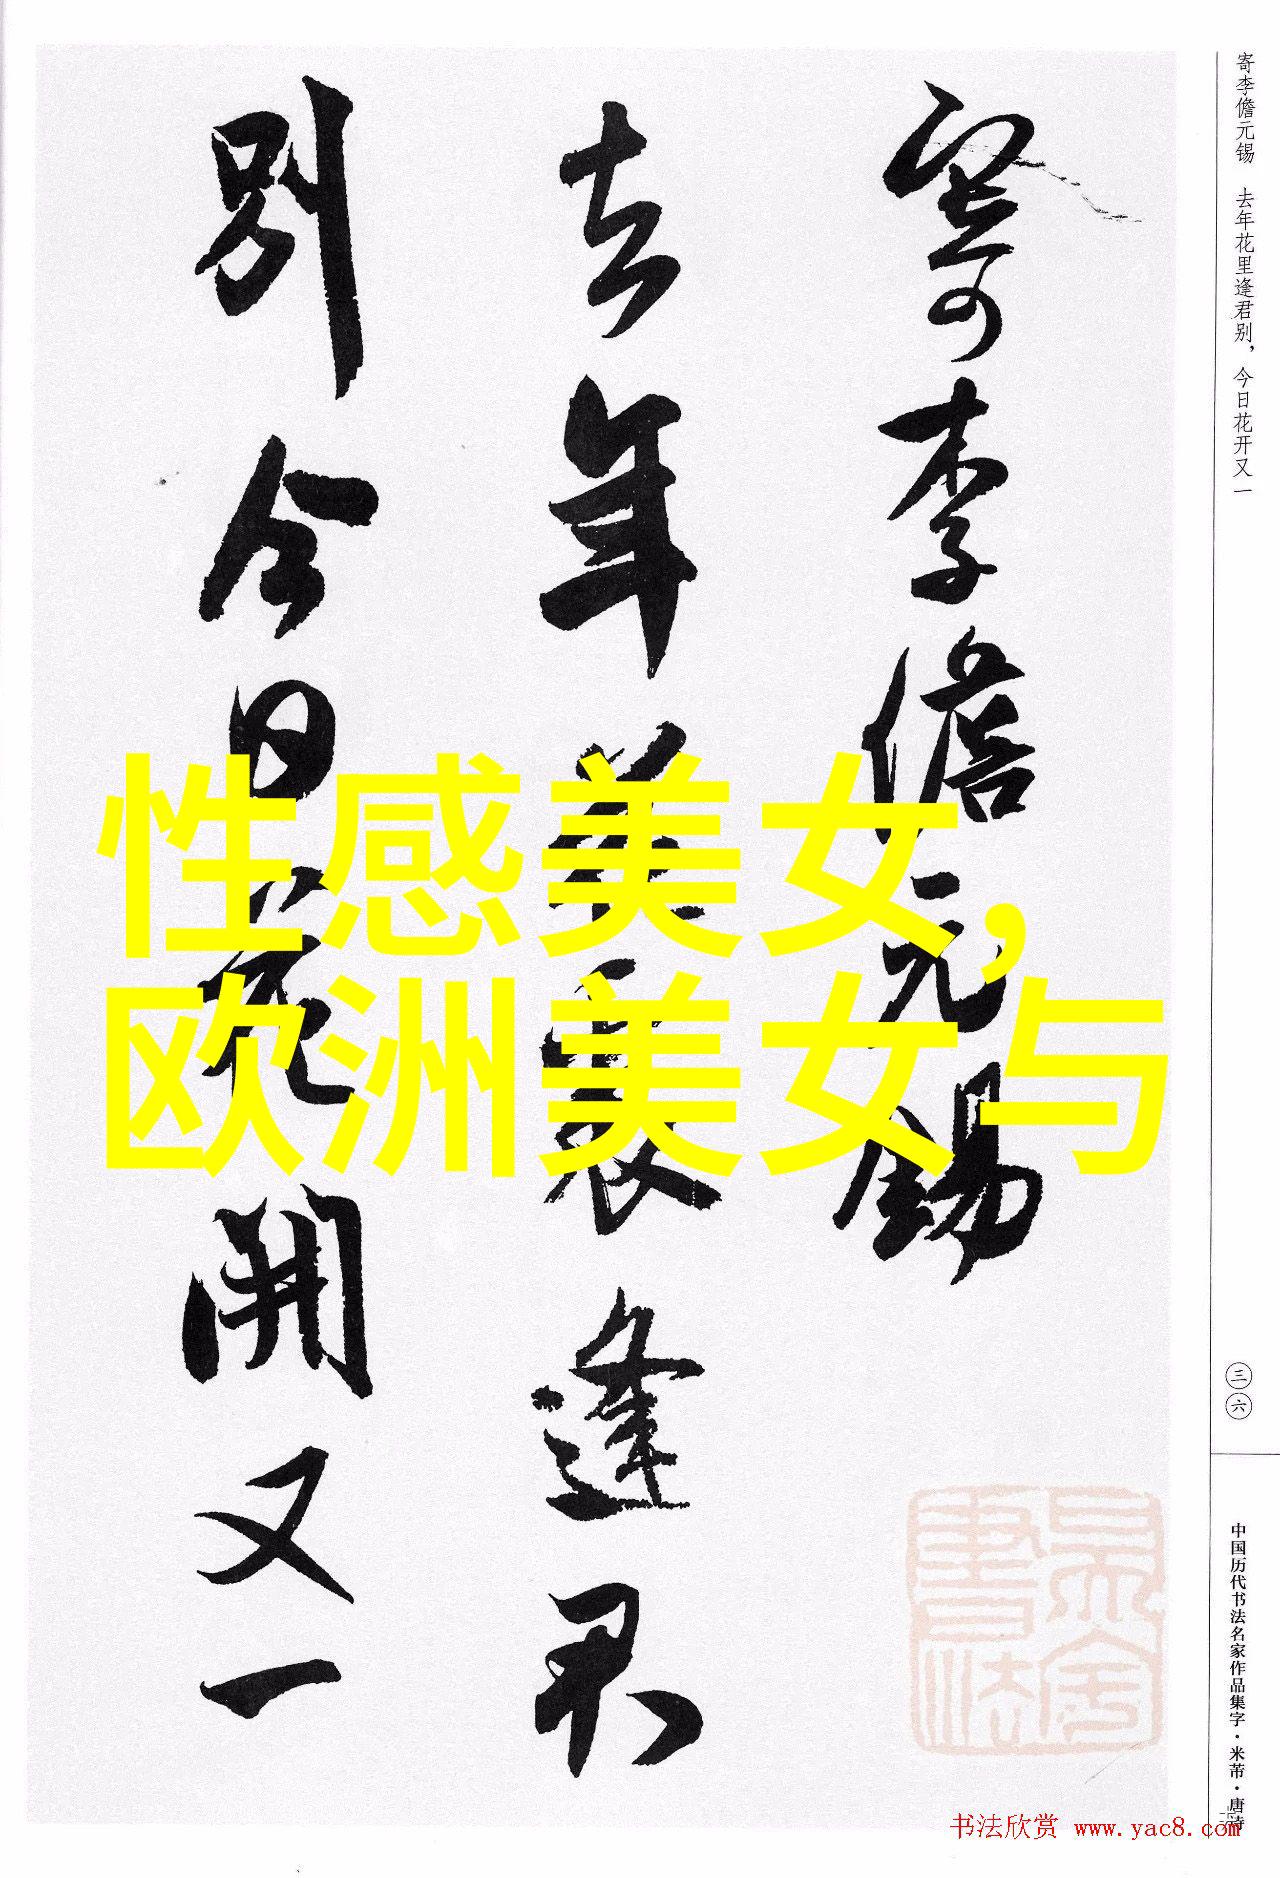 寄李儋元锡 去年花里逢君别，今日花开又一
三六
中国历代书法名家作品集字·米芾·唐诗
寄李儋元錫
去年花裏逢君
別今日花開又一
性感美女，
欧洲美女与
书法欣赏 www.yac8.com